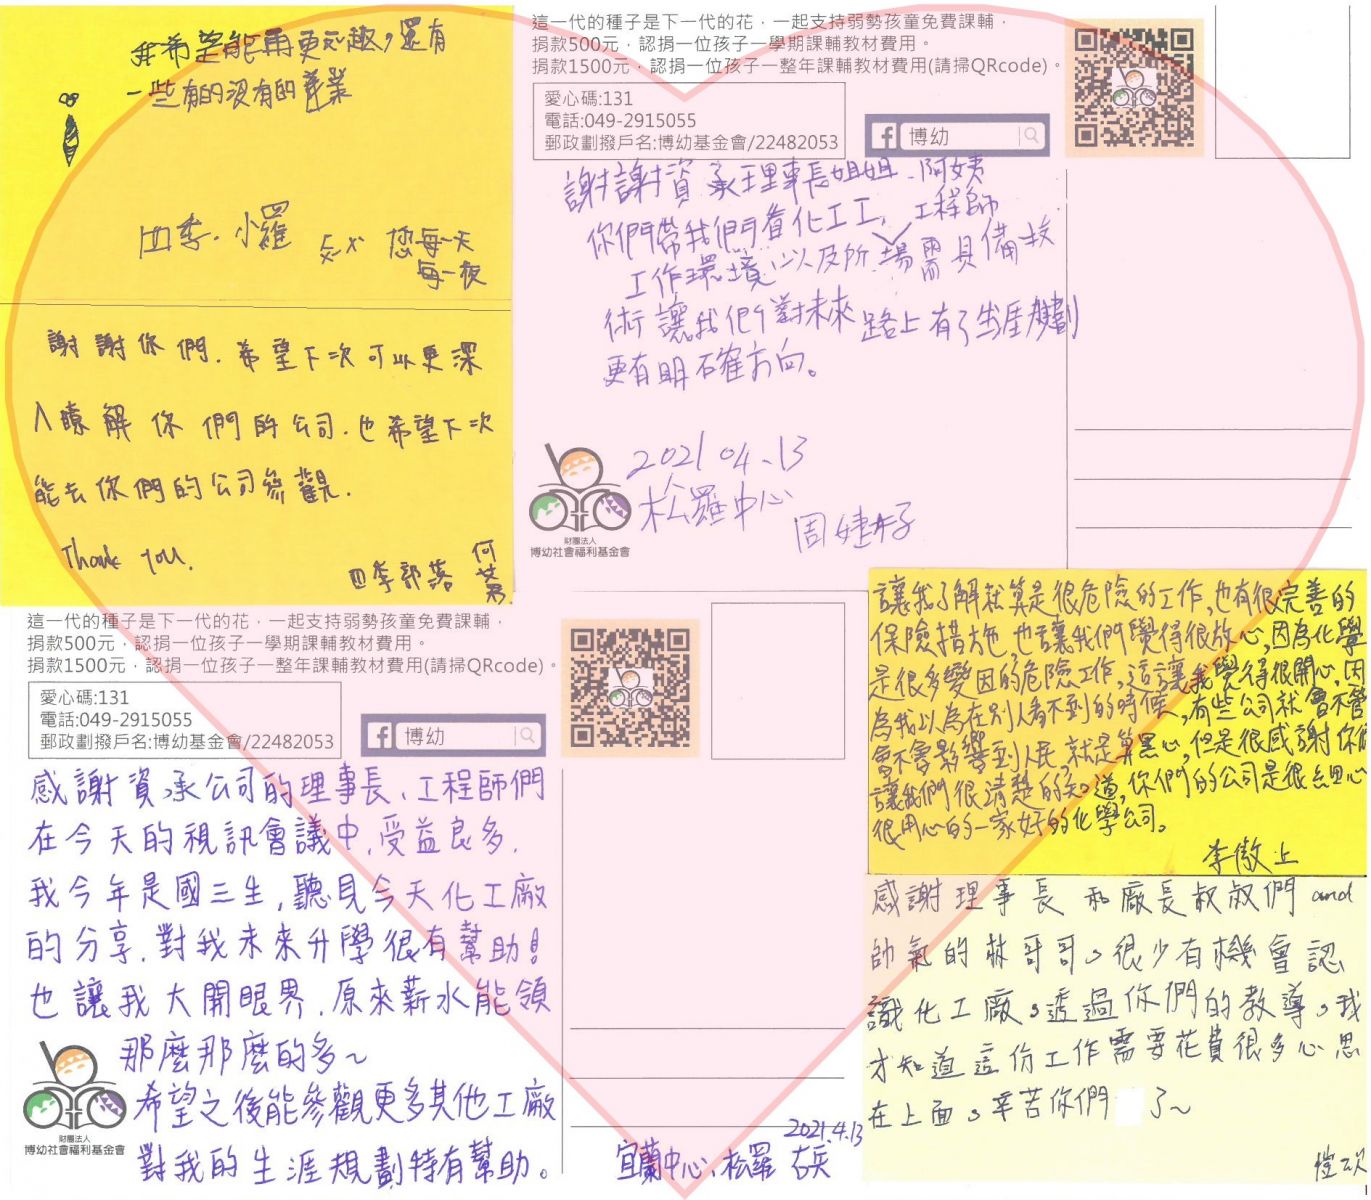 我希望能再更有趣，還有
一些有的沒有的產業
四季.小羅
您每一天
每一夜
謝謝你們.希望下次可以更深
入瞭解你們的公司.也希望下次
能去你們的公司參觀.
Thank you.
四季部落
何
這一代的種子是下一代的花，一起支持弱勢孩童免費課輔，
捐款500元，認捐一位孩子一學期課輔教材費用。
捐款1500元，認捐一位孩子一整年課輔教材費用(請掃QRcode)。
愛心碼:131
電話:049-2915055
郵政劃撥戶名:博幼基金會/22482053
f 博幼
謝謝資承理事長姐姐.阿姨
你們帶我們看化工工，工程師
工作環境，以及所場需具備技
術讓我們對未來路上有了生涯規劃
更有明確方向。
2021 04.13
松羅中心
周婕妤
財團法人
博幼社會福利基金會
這一代的種子是下一代的花，一起支持弱勢孩童免費課輔，
捐款500元，認捐一位孩子一學期課輔教材費用。
捐款1500元，認捐一位孩子一整年課輔教材費用(請掃QRcode)。
愛心碼:131
電話:049-2915055
郵政劃撥戶名:博幼基金會/22482053
f 博幼
感謝資承公司的理事長、工程師們
在今天的視訊會議中，受益良多，
我今年是國三生，聽見今天化工廠
的分享，對我未來升學很有幫助！
也讓我大開眼界，原來薪水能領
那麼那麼的多～
希望之後能參觀更多其他工廠
對我的生涯規劃特有幫助。
財團法人
博幼社會福利基金會
2021.4.13
宜蘭中心、松羅
讓我了解就算是很危險的工作，也有很完善的
保險措施，也讓我們覺得很放心，因為化學
是很多變因的危險工作，這讓我覺得很開心，因
為我以為在別人看不到的時候，有些公司就會不管
會不會影響到人民，就是算黑心，但是很感謝你們
讓我們很清楚的知道，你們的公司是很細心
很用心的一家好的化學公司。
李傲上
感謝理事長和廠長叔叔們and
帥氣的林哥哥。很少有機會認
識化工廠。透過你們的教導，我
才知道這份工作需要花費很多心思
在上面。辛苦你們 了～